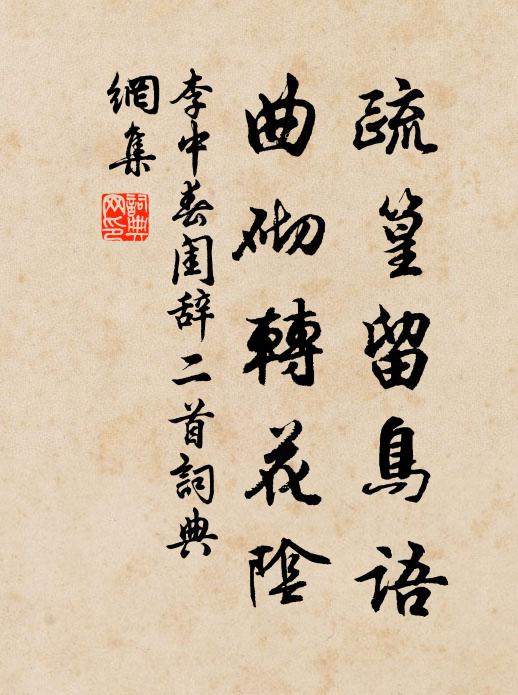 疏篁留鳥語
曲砌轉花陰
李中春閨辞二首詞典
網集
詞典
网印